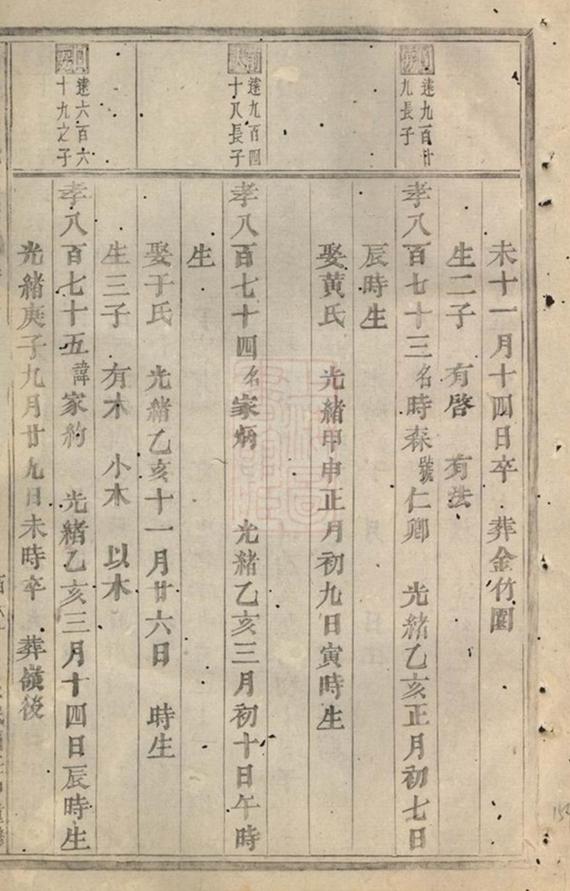 未十一月十四日卒 葬金竹園
生二子 有啓 有法
達九百廿
九長子
孝八百七十三名時森號仁卿 光緒乙亥正月初七日
辰時生
娶黃氏 光緒甲申正月初九日寅時生
達九百四
十八長子
孝八百七十四名家炳 光緒乙亥三月初十日午時
生
娶于氏 光緒乙亥十一月廿六日 時生
生三子 有木 小木 以木
達六百六
十九之子
孝八百七十五諱家約 光緒乙亥三月十四日辰時生
光緒庚子九月廿九日未時卒 葬嶺後